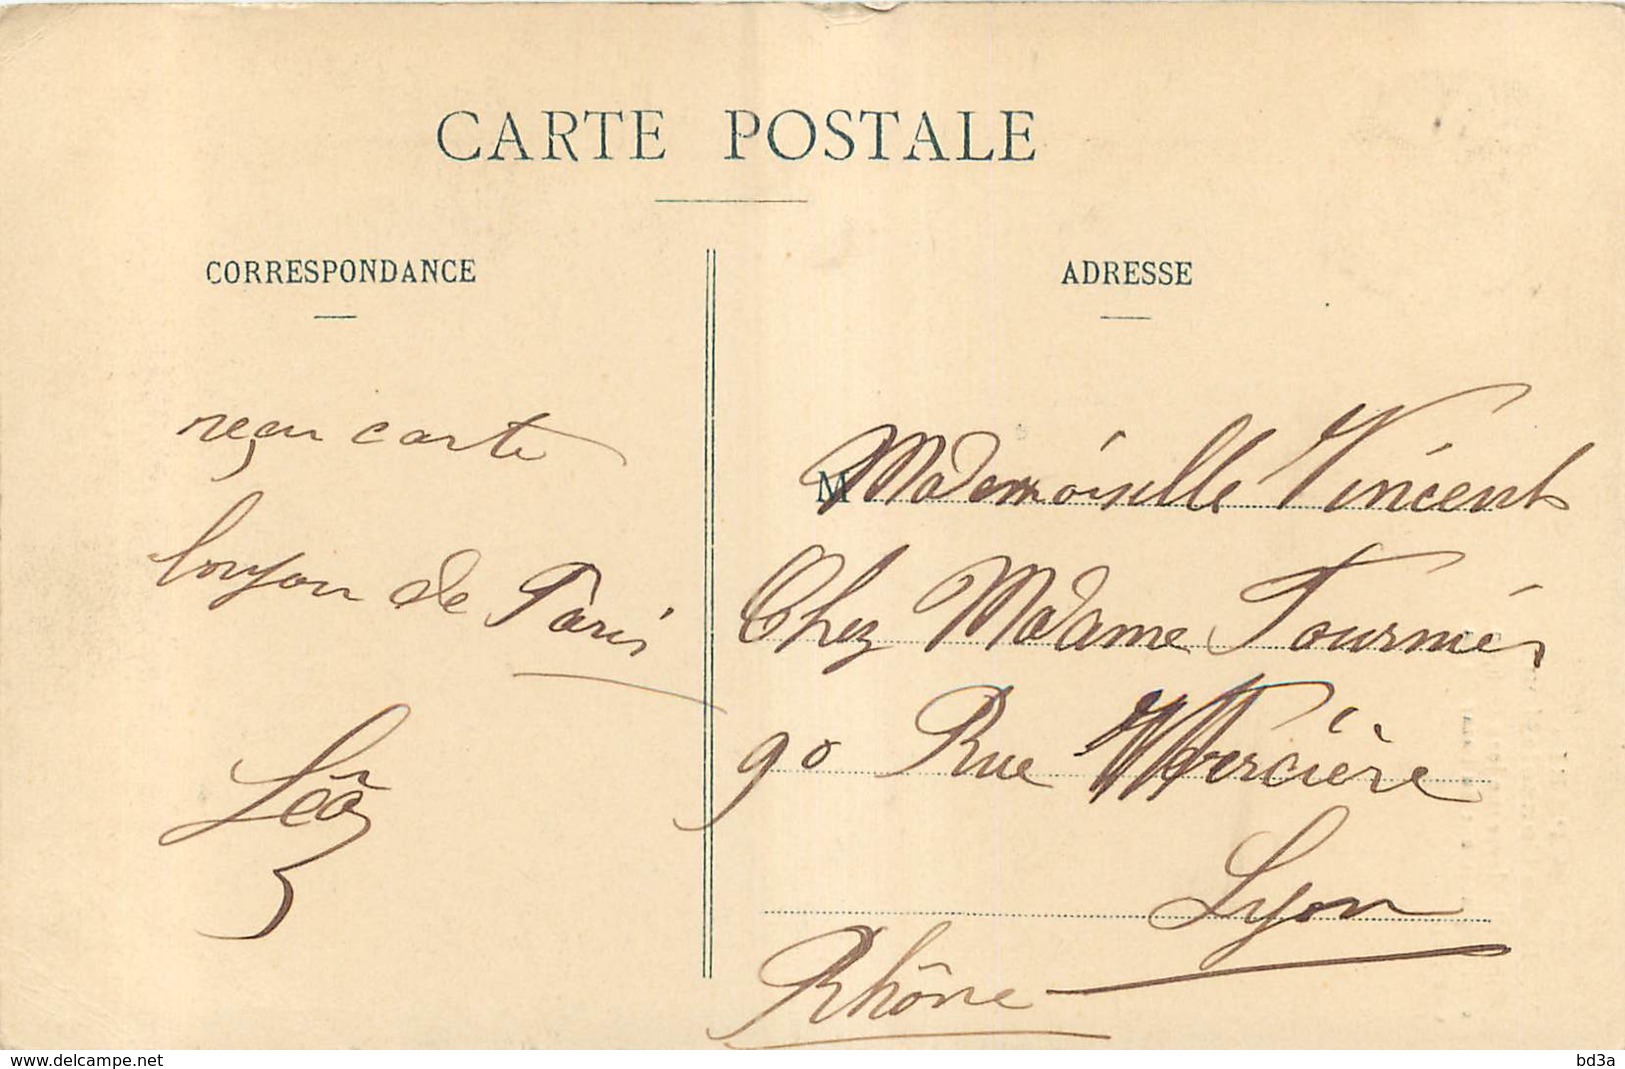 CARTE POSTALE
CORRESPONDANCE
ADRESSE
reçu carte
de Paris
Léo
M Mademoiselle Vincent
Chez Madame Tournier
90 Rue Mercière
Lyon
Rhône
www.delcampe.net
bd3a